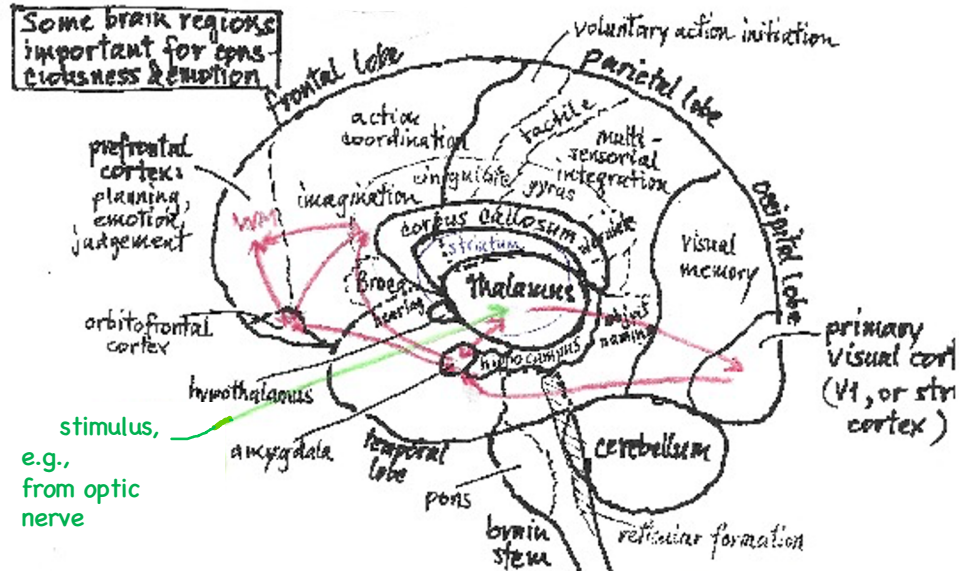 Some brain regions
important for cons-
ciousness & emotion
frontal lobe
voluntary action initiation
parietal lobe
action
coordination
tactile
multi-
sensorial
integration
prefrontal
cortex:
planning,
emotion,
judgement
imagination
cinguilate
gyrus
WM
corpus callosum
striatum
visual
memory
occipital lobe
Broca
hearing
thalamus
object
naming
orbitofrontal
cortex
hippocampus
primary
visual cort
(V1, or stri
cortex)
hypothalamus
stimulus,
e.g.,
from optic
nerve
amygdala
temporal
lobe
cerebellum
pons
brain
stem
reticular formation